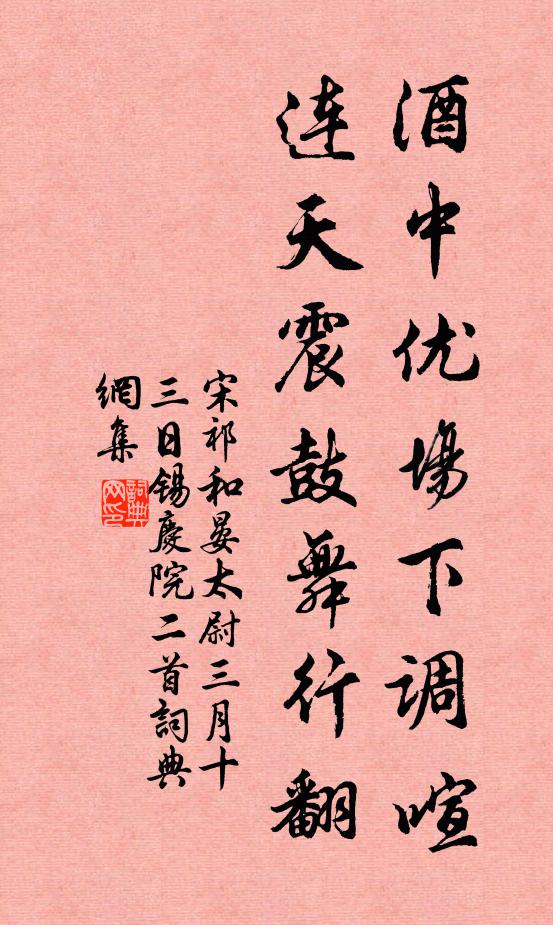 酒中优場下调喧
连天震鼓舞行翻
宋祁和晏太尉三月十
三日锡慶院二首詞典
網集
詞典
网印